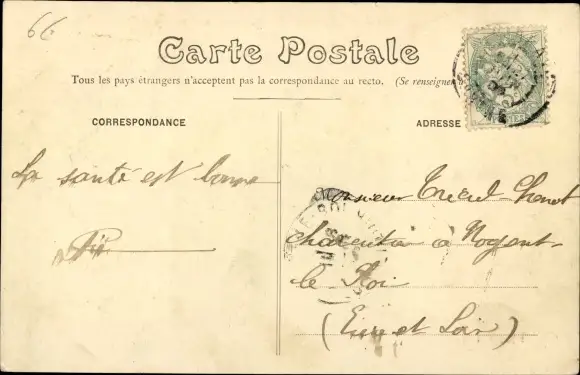 66
Carte Postale
Tous les pays étrangers n'acceptent pas la correspondance au recto. (Se renseigner
CORRESPONDANCE
ADRESSE
La santé est bonne
Monsieur
à Nogent
le Roi
(Eure et Loir)